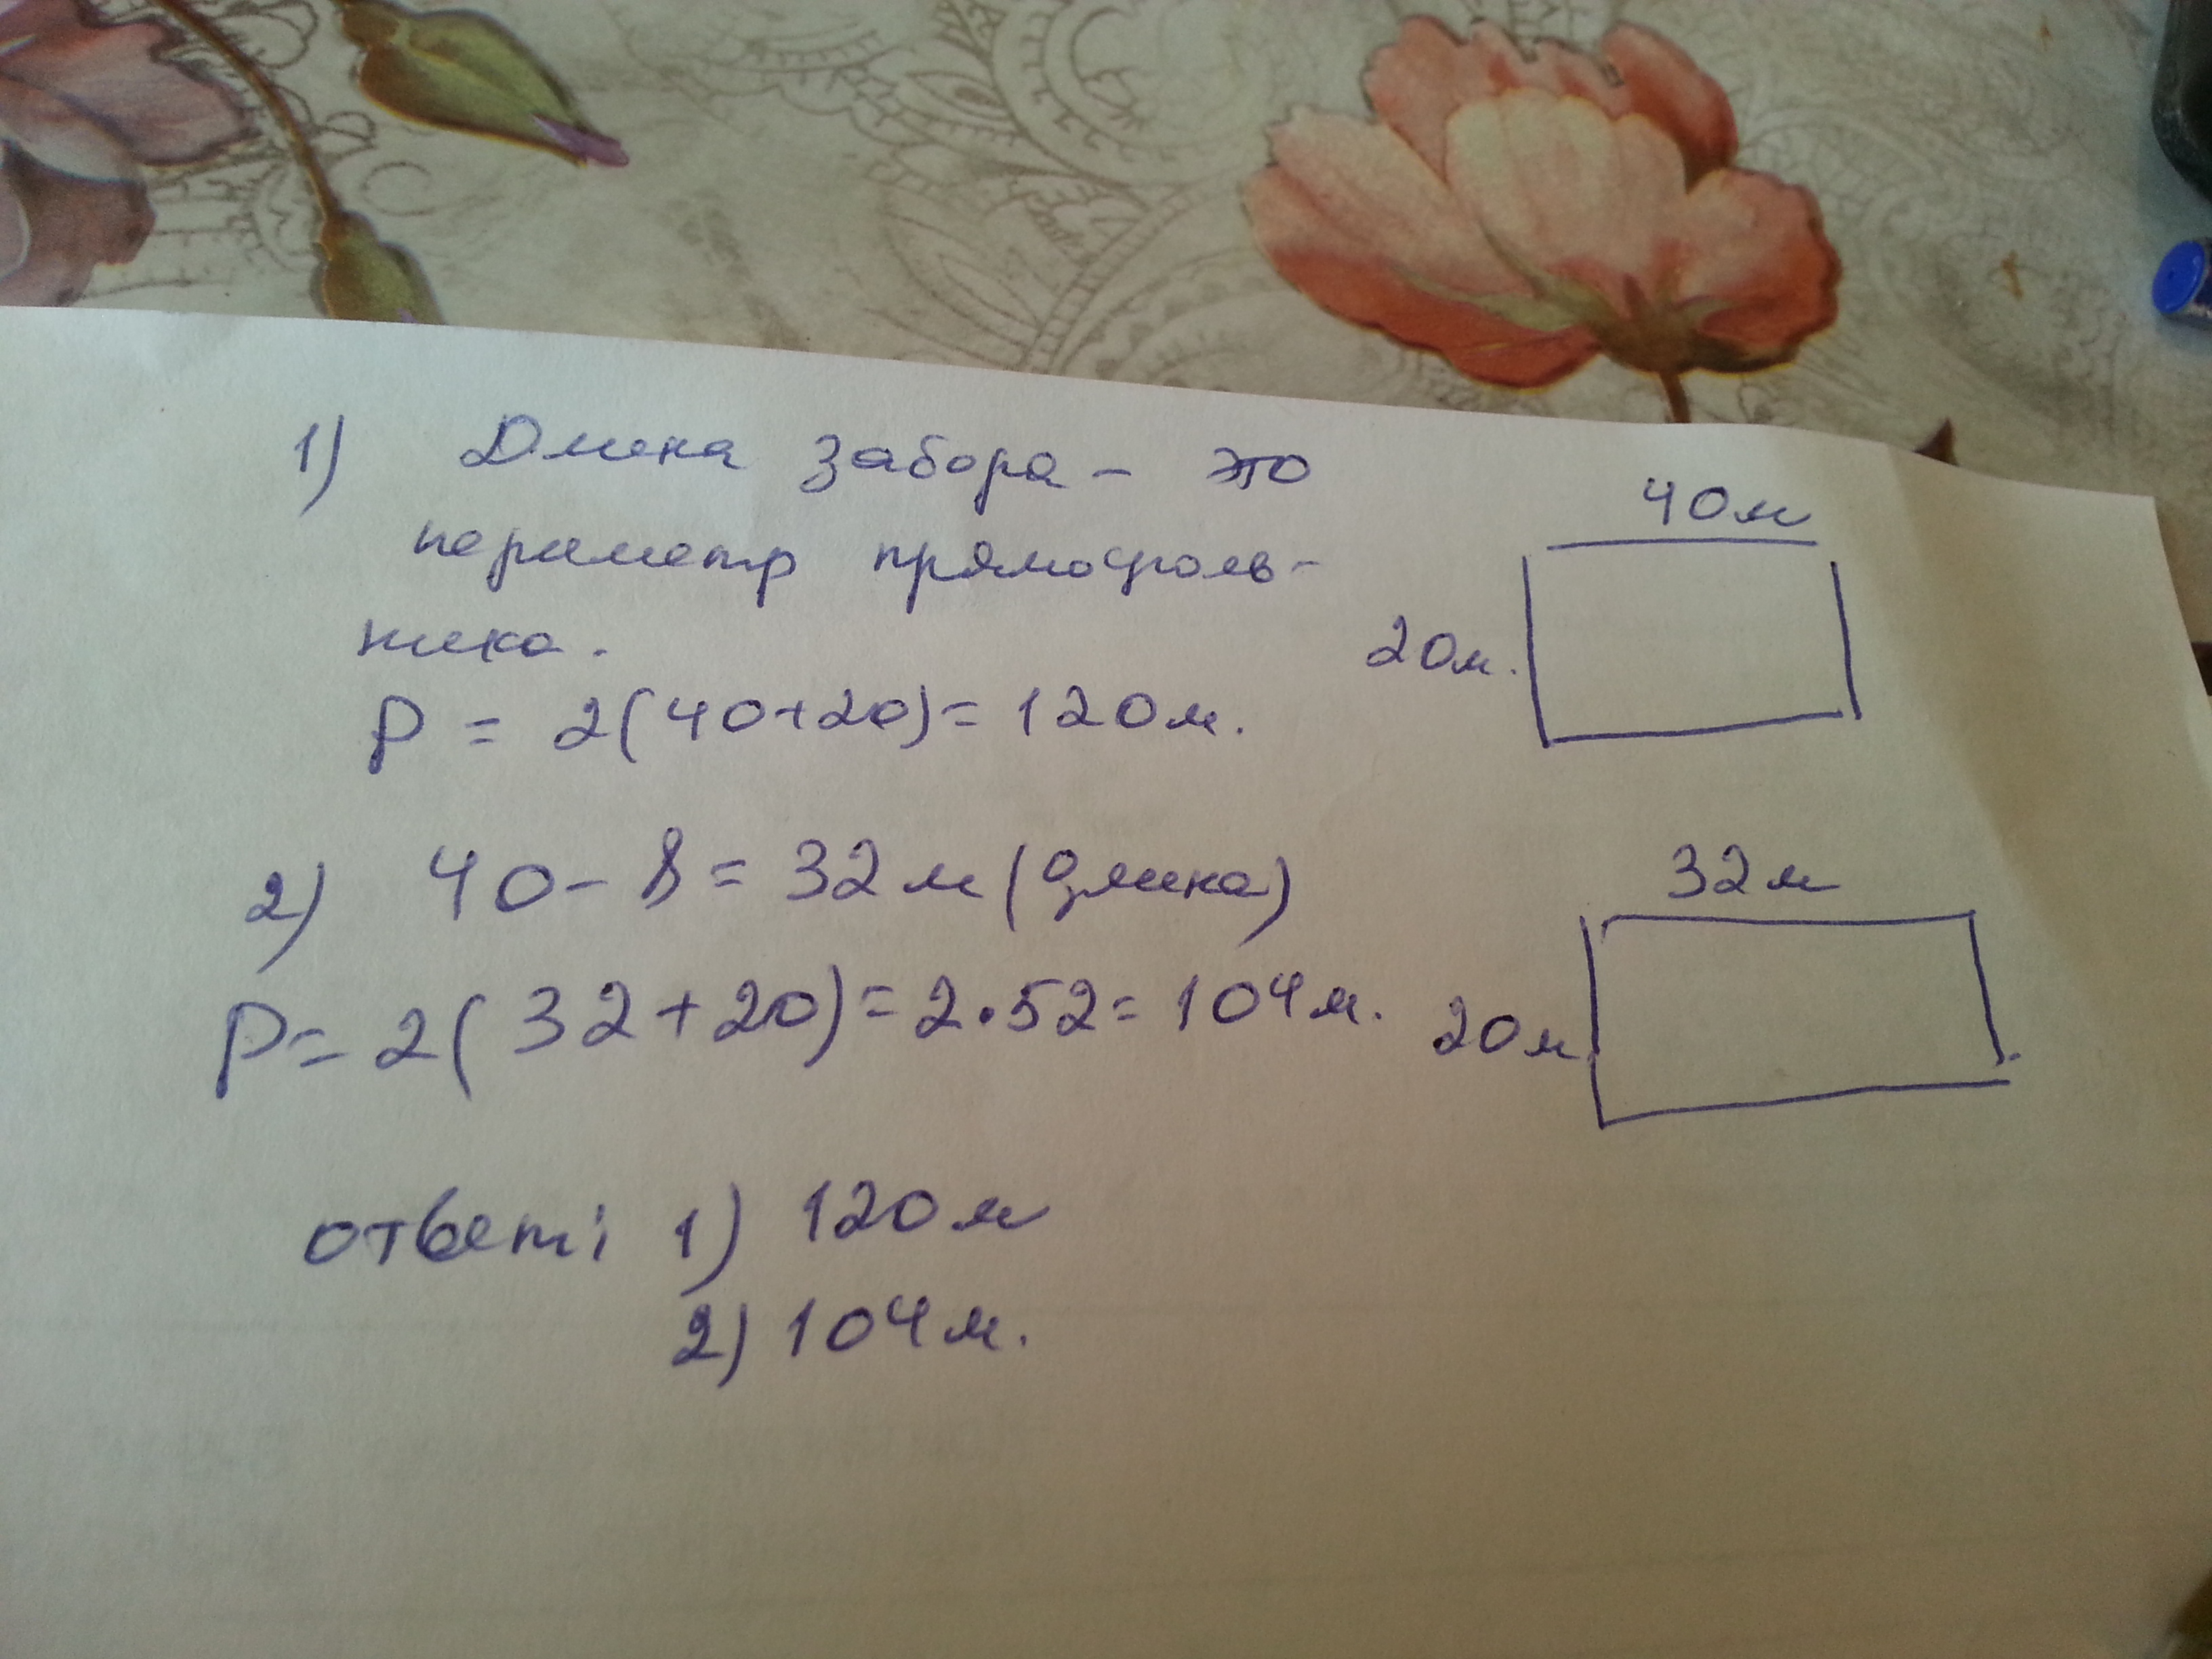 1) Длина забора - это
40м
периметр прямоуголь-
ника.
20м.
P = 2(40+20)= 120м.
2) 40 - 8 = 32 м (длина)
32 м
P = 2( 32 + 20) = 2·52 = 104м.
20м
ответ: 1) 120 м
2) 104 м.